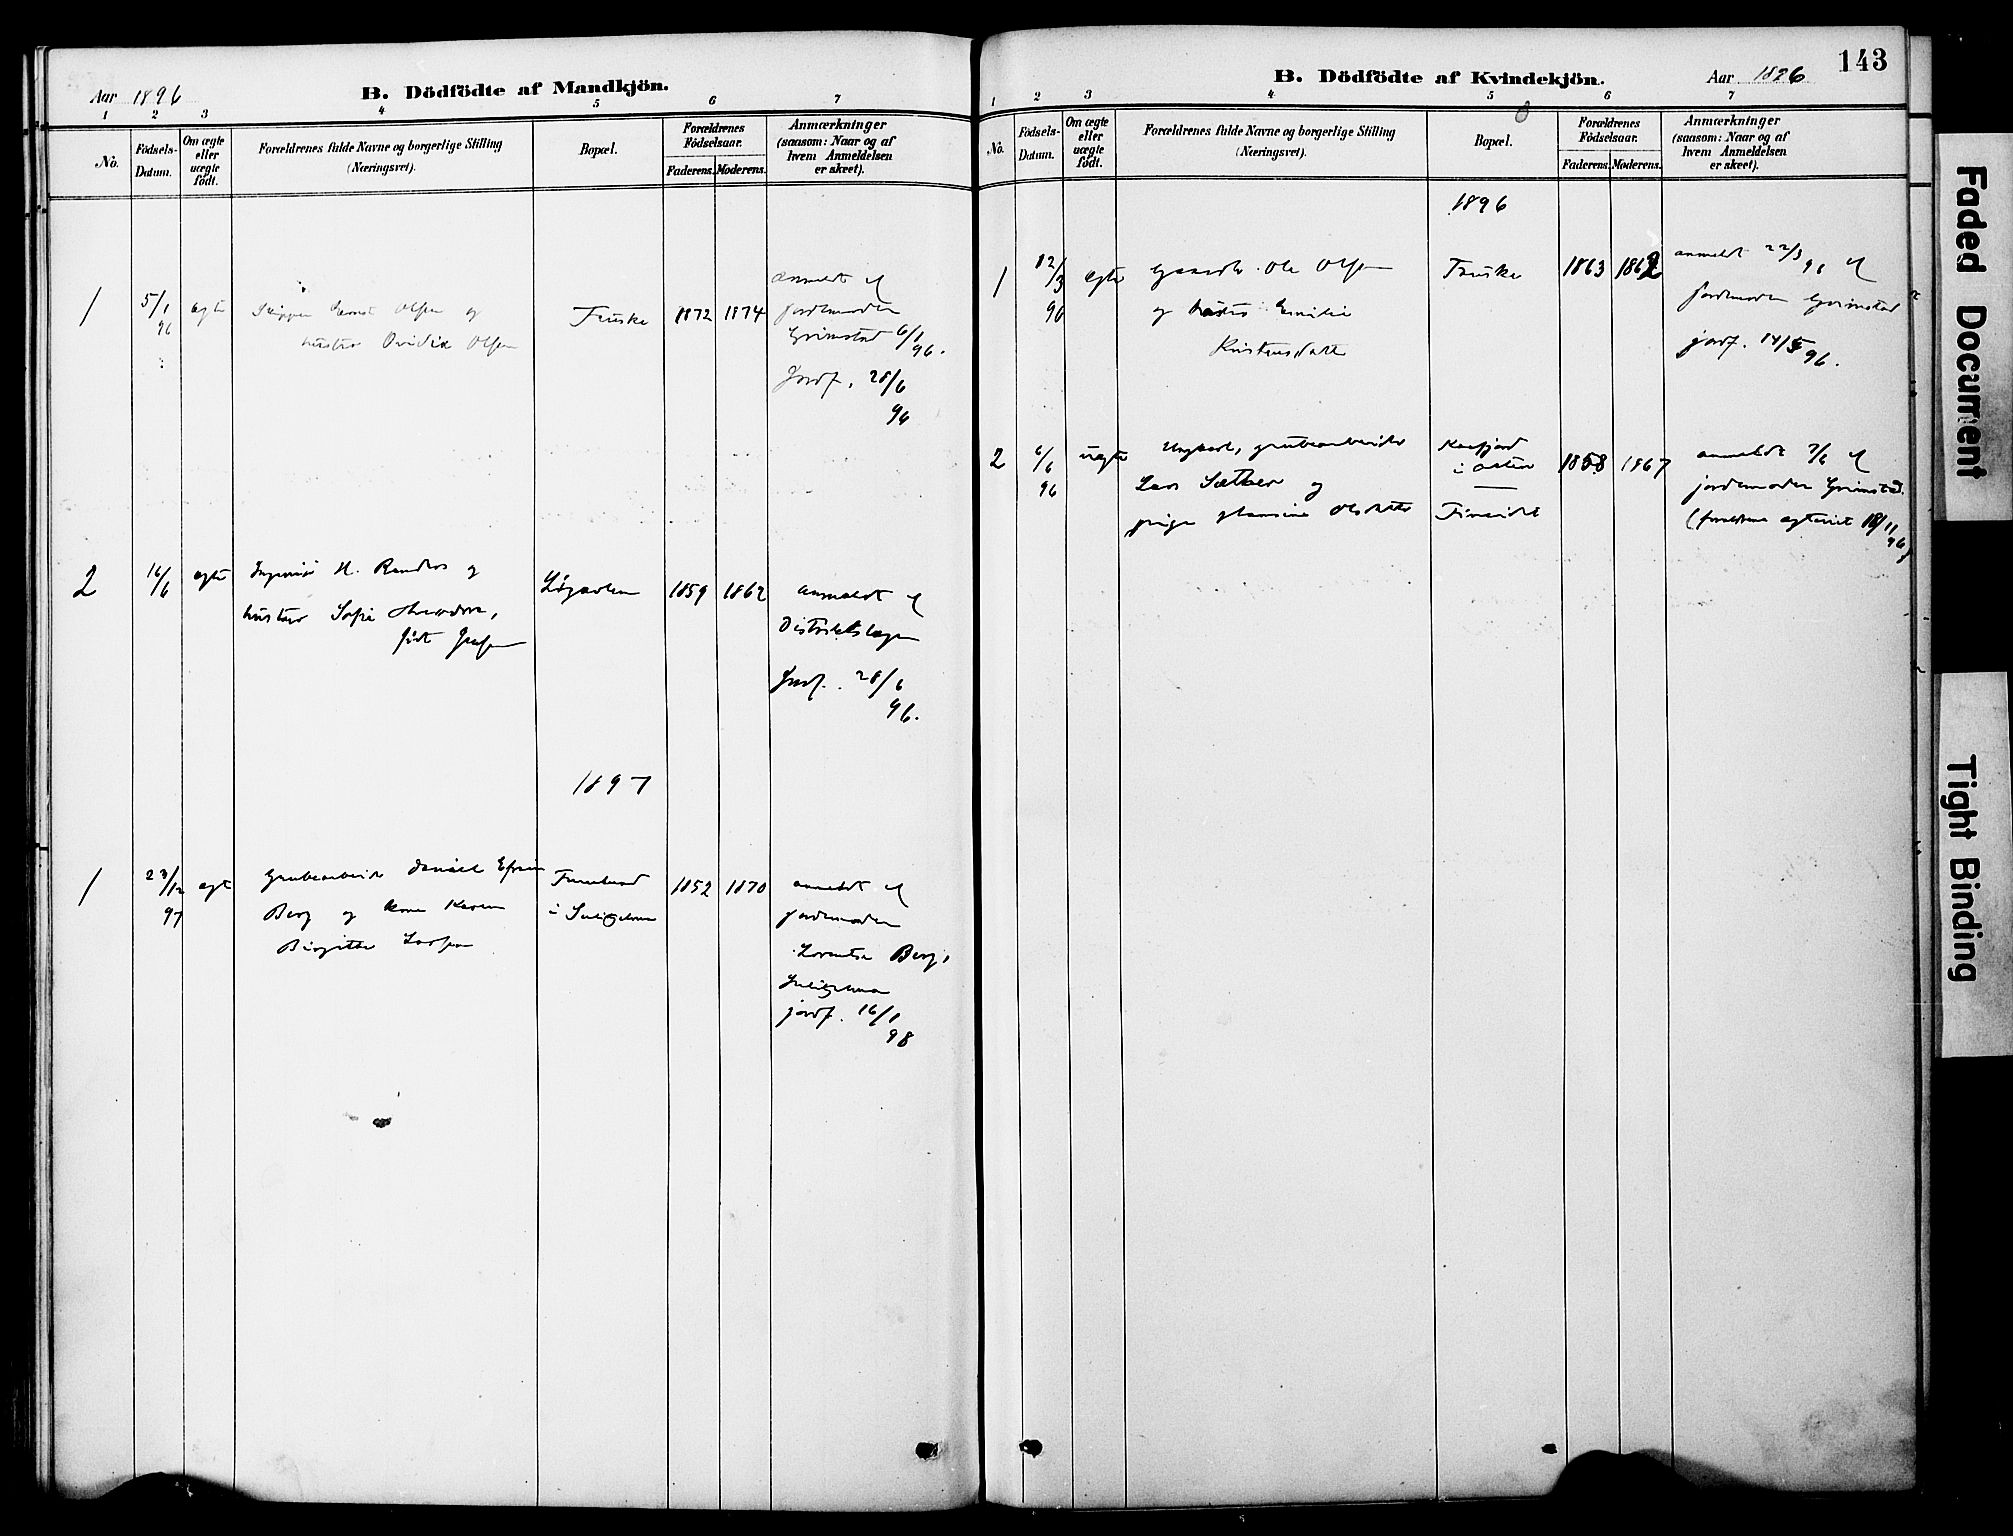 Aar 1896
B. Dödfödte af Mandkjön.
1 2 3 4 5 6 7
No.
Födsels-
Datum.
Om ægte
eller
uægte
födt.
Forældrenes fulde Navne og borgerlige Stilling
(Næringsvei).
Bopæl.
Forældrenes
Födselsaar.
Faderens. Moderens.
Anmærkninger
(saasom: Naar og af
hvem Anmeldelsen
er skeet).
1 5/1 96 ægte
Olsen og
hustru Ovidia Olsen
Fauske 1872 1874
anmeldt af
jordemoder
Grimstad 6/1 96.
Jordf. 28/6 96
2 16/6 ægte
Ingeniør H. Randers og
hustru Sofie
født
Løgavlen 1859 1862
anmeldt af
Distriktslægen
Jordf. 28/6 96.
1897
1 23/12 97 ægt
Grubearbeid Daniel Efraim
Berg og Kone Karen
Birgitte Larsen
i Sulitjelma
1852 1870
anmeldt af
jordemoder
Lorentse Berg,
Sulitjelma
jordf. 16/1 98
B. Dödfödte af Kvindekjön.
Aar 1896
143
1 2 3 4 5 6 7
No.
Födsels-
Datum.
Om ægte
eller
uægte
födt.
Forældrenes fulde Navne og borgerlige Stilling
(Næringsvei).
Bopæl.
Forældrenes
Födselsaar.
Faderens. Moderens.
Anmærkninger
(saasom: Naar og af
hvem Anmeldelsen
er skeet).
1896
1 12/3 96 ægte
Ole Olsen
og hustru Emilie
Kristensdatter
Fauske 1863 1862
anmeldt 22/3 96 af
jordemoder Grimstad
jordf. 14/5 96.
2 6/6 96 uægte
Ungkarl, grubearbeider
Lars Sæther og
pige Hansine Olsdatter
Kaafjord
i Alten
—
Finneidet
1858 1867
anmeldt 7/6 af
jordemoder Grimstad.
(forældrene ægteviet 18/11 96)
Faded Document
Tight Binding